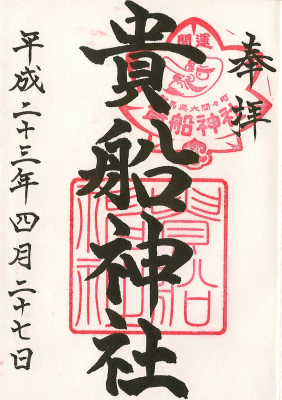 奉拝
開運
大間々町
貴船神社
貴船神社
貴船神社
平成二十三年四月二十七日